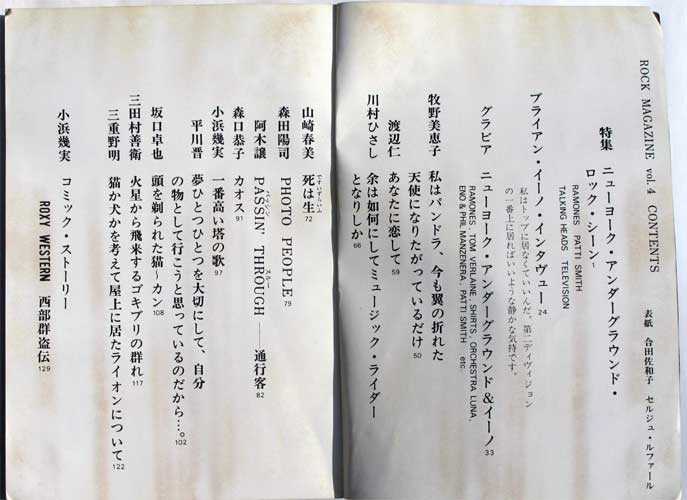 ROCK MAGAZINE vol 4 CONTENTS
表紙 合田佐和子 セルジュ・ルファール
特集 ニューヨーク・アンダーグラウンド・
ロック・シーン 1
RAMONES PATTI SMITH
TALKING HEADS TELEVISION
ブライアン・イーノ・インタヴュー 24
私はトップに居なくていいんだ。第二ディヴィジョン
の一番上に居ればいいような静かな気持です。
グラビア ニューヨーク・アンダーグラウンド&イーノ 33
RAMONES, TOM VERLAINE, SHIRTS, ORCHESTRA LUNA,
ENO & PHIL MANZENERA, PATTI SMITH etc
牧野美恵子 私はパンドラ、今も翼の折れた
天使になりたがっているだけ 50
渡辺仁 あなたに恋して 59
川村ひさし 余は如何にしてミュージック・ライダー
となりしか 66
山崎春美 死は生 72
森田陽司 PHOTO PEOPLE 79
阿木譲 PASSIN' THROUGH ── 通行客 82
パッシン スルー
森口恭子 カオス 91
小浜幾実 一番高い塔の歌 97
平川晋 夢ひとつひとつを大切にして、自分
の物として行こうと思っているのだから…。 102
坂口卓也 頭を剃られた猫〜カン 108
三田村善衛 火星から飛来するゴキブリの群れ 117
三重野明 猫か犬かを考えて屋上に居たライオンについて 122
小浜幾実 コミック・ストーリー
ROXY WESTERN 西部群盗伝 129